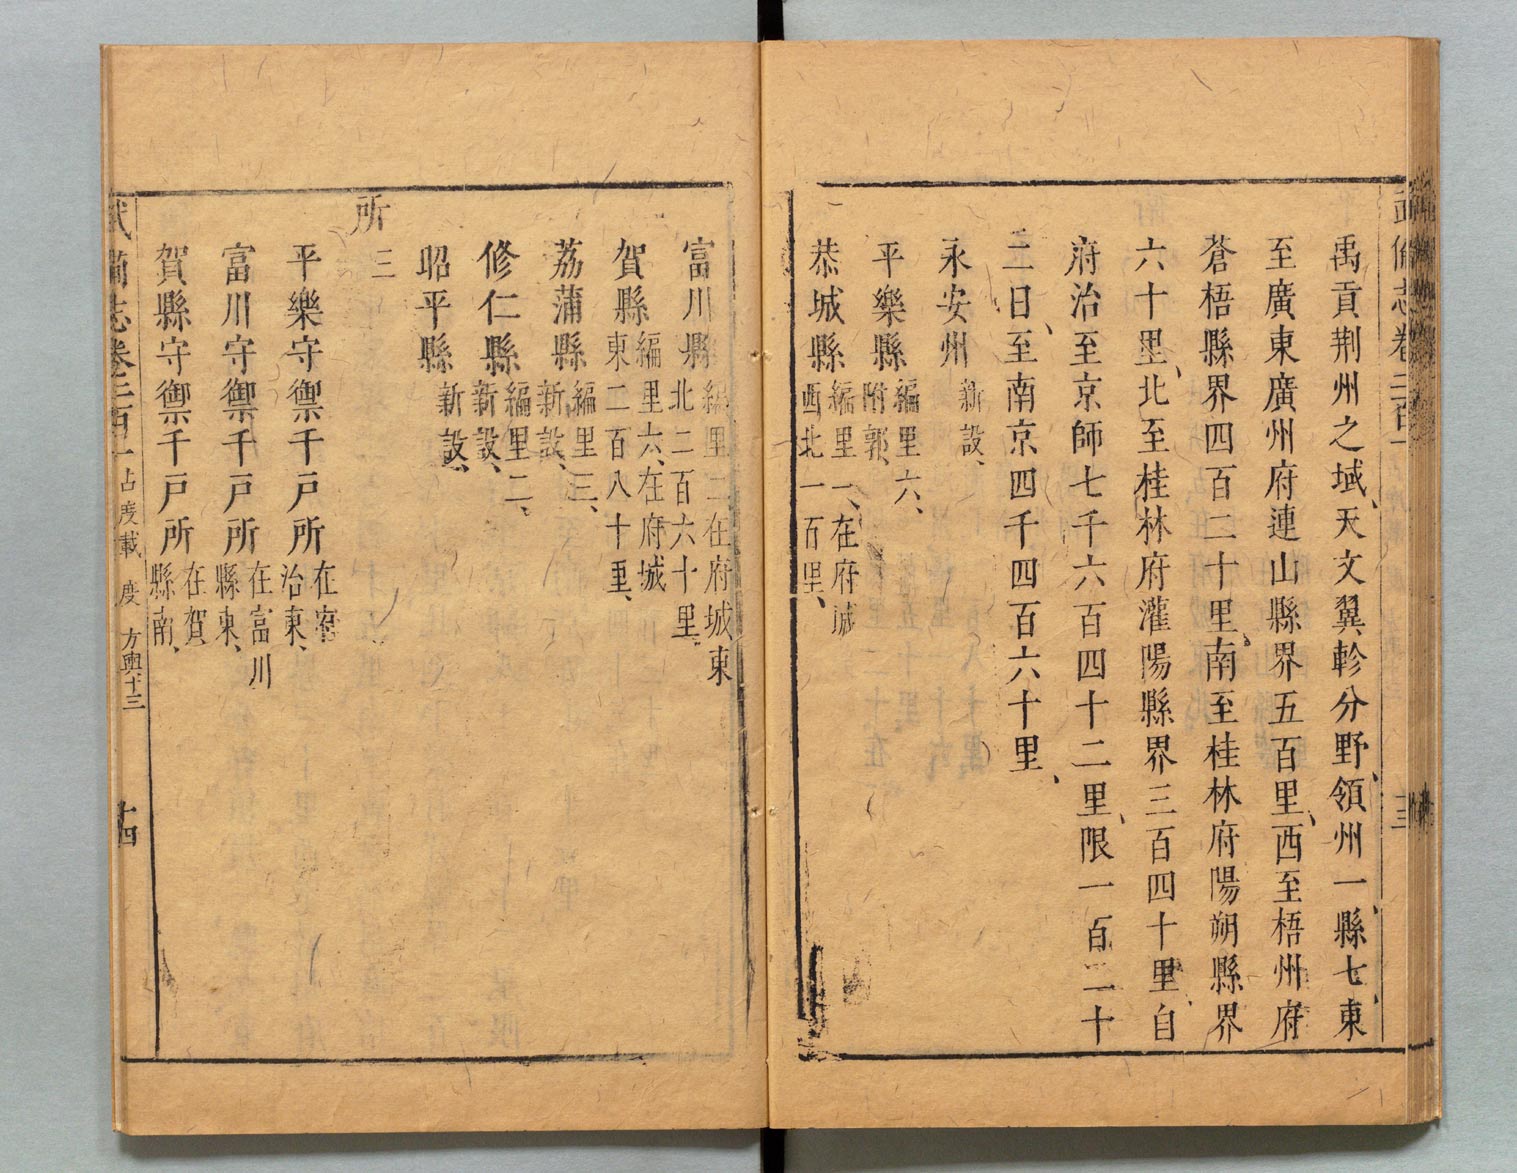 武備志卷三百一
十三
禹貢荆州之域、天文翼軫分野、領州一、縣七、東
至廣東廣州府連山縣界五百里、西至梧州府
蒼梧縣界四百二十里、南至桂林府陽朔縣界
六十里、北至桂林府灌陽縣界三百四十里、自
府治至京師七千六百四十二里、限一百二十
二日、至南京四千四百六十里、
永安州新設、
平樂縣編里六、附郭、
恭城縣編里一、在府城西北一百里、
富川縣編里二在府城東北二百六十里、
賀縣編里六、在府城東二百八十里、
荔蒲縣編里三、新設、
修仁縣編里二、新設、
昭平縣新設、
所三
平樂守禦千戸所在府治東、
富川守禦千戸所在富川縣東、
賀縣守禦千戸所在賀縣南、
武備志卷三百一 占度載 度 方輿十三
十四